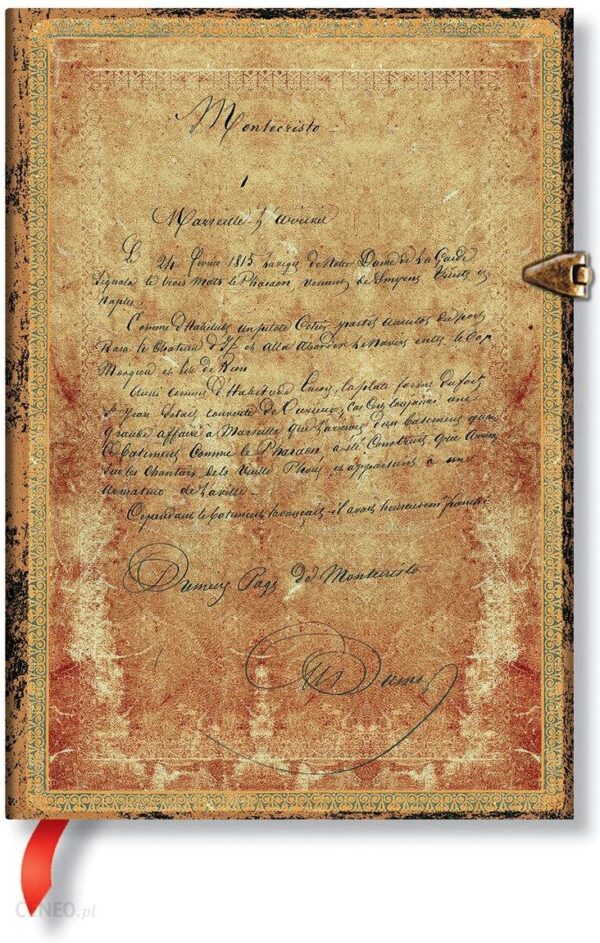 Montecristo –
1
Marseille – L'arrivée
Le 24 février 1815 la vigie de Notre Dame de La Garde
Signala le trois mats le Pharaon venant de Smyrne Trieste et
Naples.
Comme d'Habitude un pilote Cotier partit aussitot du port
Rasa le Chateau d'If et alla aborder le Navire entre le Cap
Morgiou et l'ile de Rion
Aussi comme d'Habitude Encore, la plate forme du fort
St Jean s'était couverte de Curieux, Car C'est toujours une
Grande affaire à Marseille que l'arrivée d'un batiment quand
le batiment Comme le Pharaon a été Construit
Sur les Chantiers de la Vieille et appartient à un
armateur de la ville –
Cependant le batiment avançait – il avait heureusement franchi
Dumas Page de Montecristo
Alx Dumas
CENEO.pl